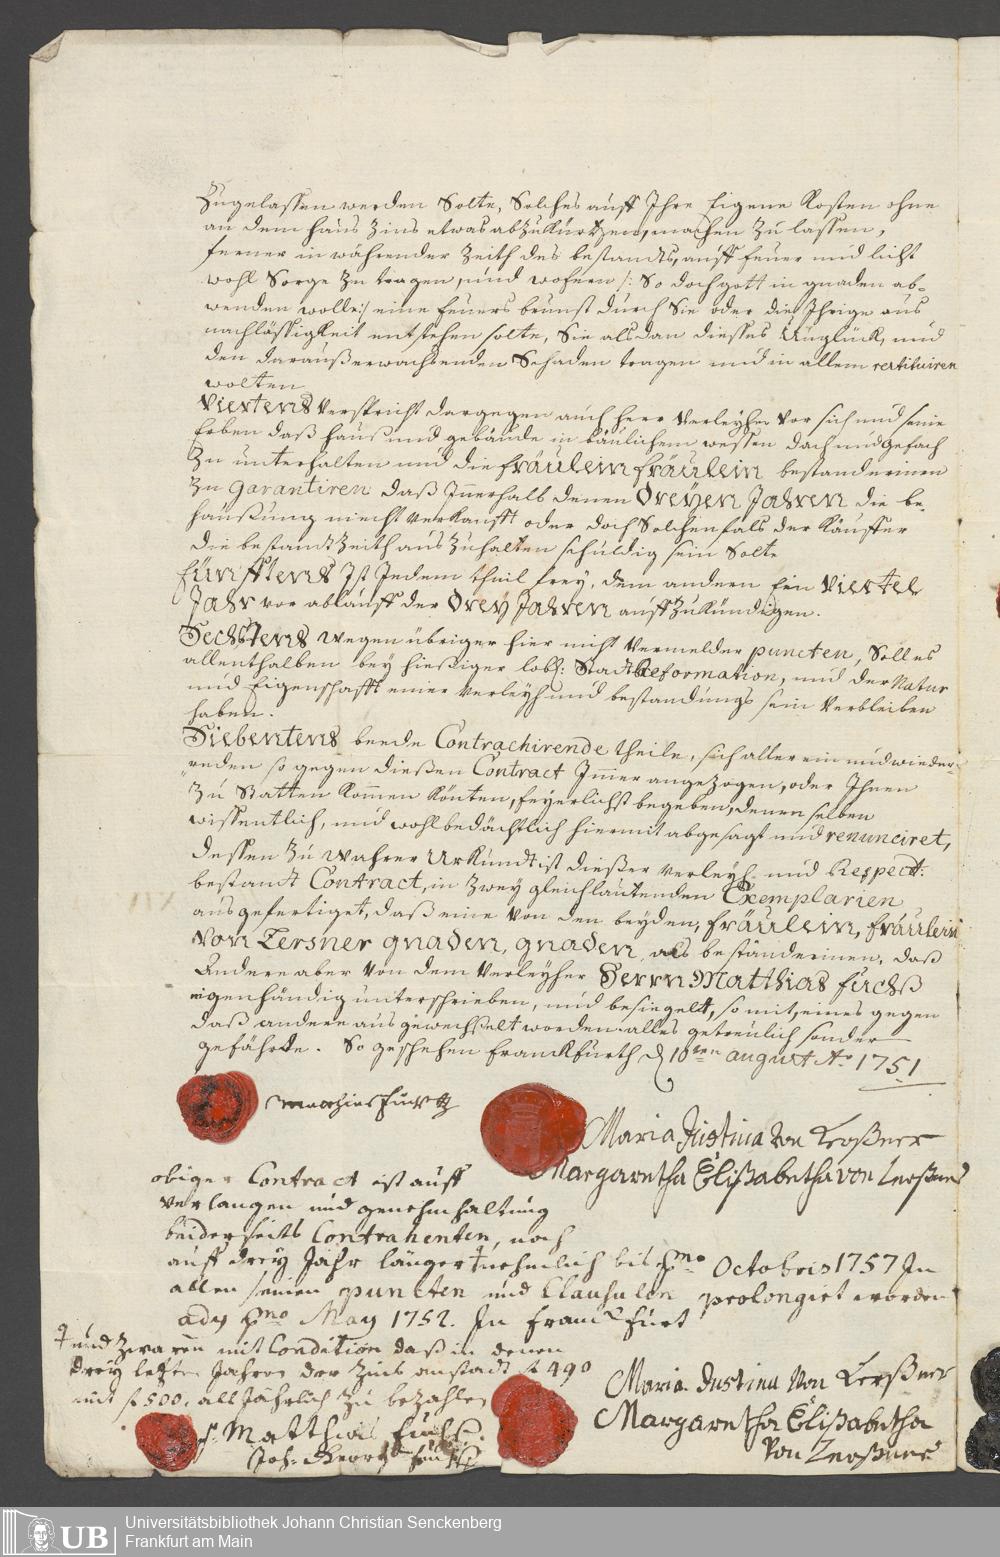 Zugelassen werden Solte, Solches auff Ihre Eigene Kosten ohne
an dem hauß Zins etwas abzukürtzen, machen zu lassen,
ferner in währender Zeith des bestandts, auff feuer und licht
wohl Sorge zu tragen, und wofern /: So doch gott in gnaden ab-
wenden wolle :/ eine feuers brunst durch Sie oder die Ihrige aus
nachlässigkeit entstehen solte, Sie alsdan dießes Unglück, und
den darauß erwachsenden Schaden tragen und in allem restituiren
wolten
Viertens Verspricht dargegen auch herr Verleyher Vor sich und seine
Erben daß hauß und gebäude in baulichem wessen dach und gefach
Zu unterhalten und die fräulein fräulein bestanderinnen
Zu Garantiren daß Innerhalb denen Dreyen Jahren die be-
haußung niecht Verkaufft oder doch Solchenfals der Käuffer
die bestandt Zeith aus Zuhalten schuldig sein Solte
fünfftens Ist Jedem theil frey, dem andern Ein Viertel
Jahr vor ablauff der Drey Jahren auffzukündigen.
Sechstens wegen übriger hier nicht Vermelder puncten, Soll es
allenthalben bey hießiger lobl: Stadt Reformation, und der Natur
und Eigenschafft einer Verleyh und bestandungs sein Verbleiben
haben.
Siebentens beede Contrachirende theile, sich aller ein und wieder-
reden so gegen dießen Contract Immer angezogen, oder Ihnen
Zu Statten kommen könten, feyerlichst begeben, denenselben
wissentlich, und wohlbedächtlich hiermit abgesagt und renunciret,
dessen Zu wahrer Urkundt ist dießer Verleyh- und Respect:
bestandt Contract, in Zwey gleichlautenden Exemplarien
ausgefertiget, daß eine Von den beyden, fräulein, fräulein
Von Lersner gnaden, gnaden, als beständerinen, daß
Andere aber von dem Verleyher Herrn Matthias fuchß
eigenhändig unterschrieben, und besiegelt, so mit, eines gegen
daß andere ausgewechßelt worden. alles getreulich sonder
gefährde. So geschehen Franckfurth d 10ten august Ao 1751
Matthias Fuchß
Maria Justina Von Lerßner
Margaretha Elisabetha von Lerßner
obiger Contract ist auff
verlangen und genehmhaltung
beiderseits Contrahenten, noch
auff drey Jahr länger + nehmlich bis pmo Octobris 1757 In
allen seinen puncten und Clausulen prolongirt worden
ady pmo May 1752. In Franckfurt
+ und Zwaren mit Condition daß in denen
drey letzten Jahren der Zins anstadt f 490
mit f 500. all Jährlich zu bezahlen
Maria Justina Von Lerßner
Margaretha Elisabetha
Von Lerßner
Matthias Fuchß.
Joh. Georg Fuchß
UB Universitätsbibliothek Johann Christian Senckenberg
Frankfurt am Main